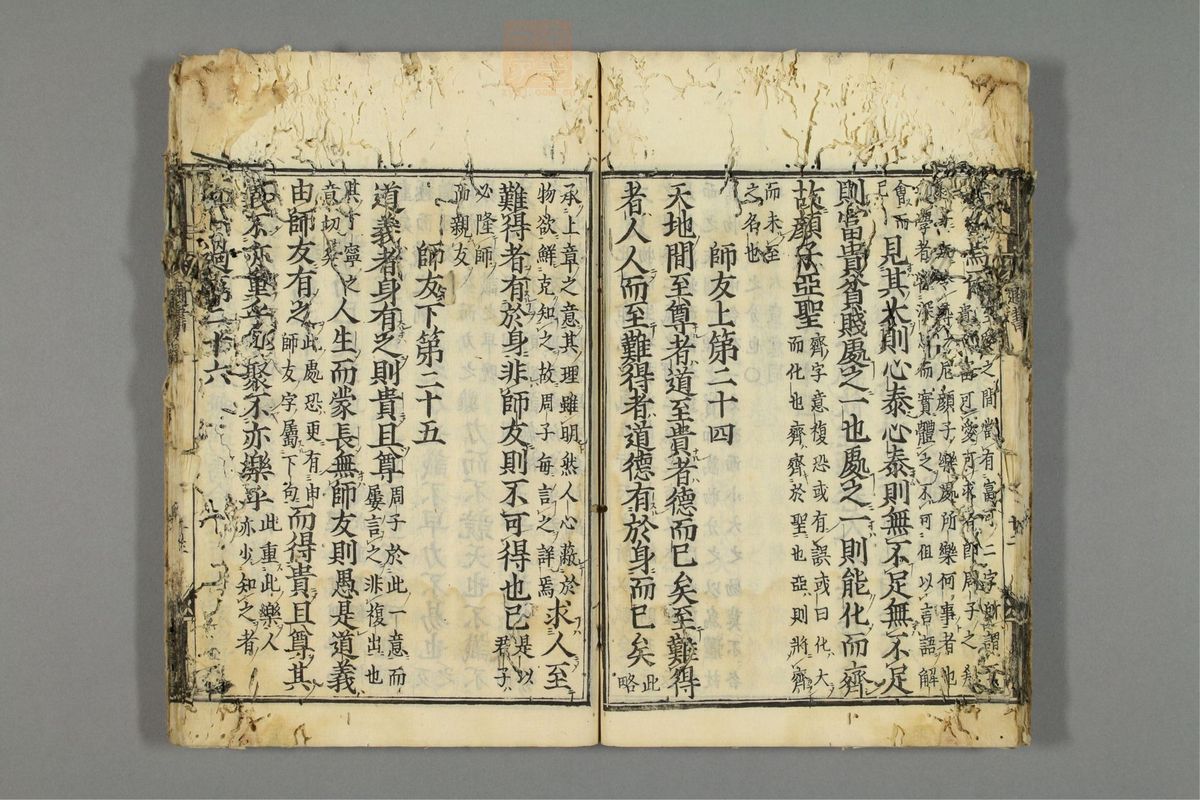 之間當有富可二字所謂至
貴至富可愛可求者即周子之
尼顏子樂處所樂何事者也
學者深思而實體之不可但以言語解
會而
已
見其大則心泰心泰則無不足無不足
則富貴貧賤處之一也處之一則能化而齊
故顏子亞聖
齊字意複恐或有誤或曰化大
而化也齊齊於聖也亞則將齊
而未至
之名也
師友上第二十四
天地間至尊者道至貴者德而已矣至難得
者人人而至難得者道德有於身而已矣
此
略
承上章之意其理雖明然人心蔽於
物欲鮮克知之故周子每言之詳焉
求人至
難得者有於身非師友則不可得也已
是以
君子
必隆師
而親友
師友下第二十五
道義者身有之則貴且尊
周子於此一意而
屢言之非複出也
其丁寧之
意切矣
人生而蒙長無師友則愚是道義
由師友有之
此處恐更有由
師友字屬下句
而得貴且尊其
義不亦重乎其聚不亦樂乎
此重此樂人
亦少知之者
過第二十六